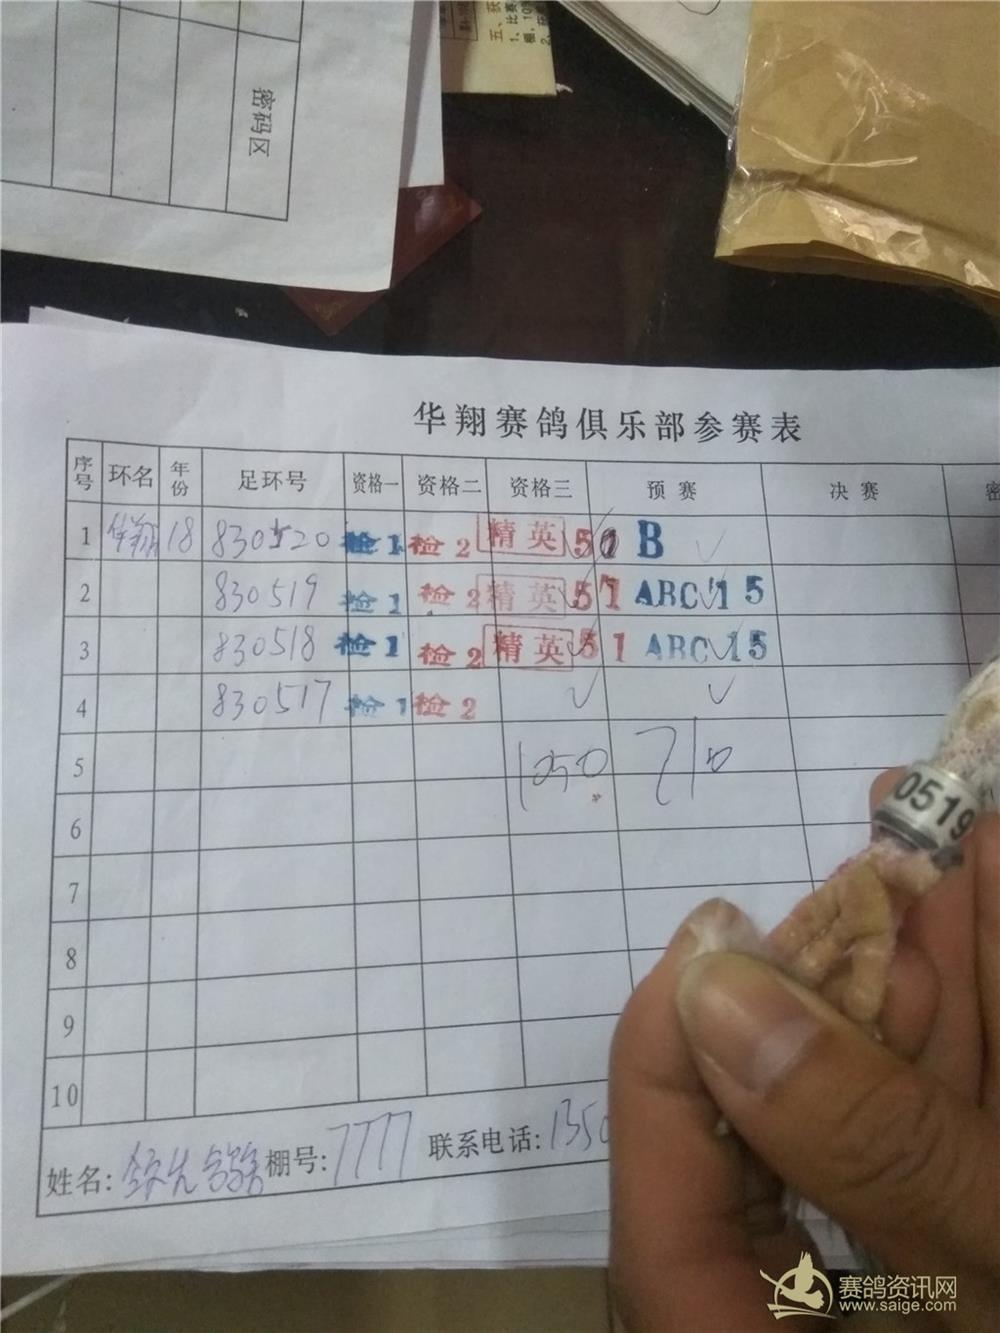 密码区
五、获
1、比赛
棚，10
2、
华翔赛鸽俱乐部参赛表
序号 环名 年份 足环号 资格一 资格二 资格三 预赛 决赛 密
1 华翔 18 830520 检1 检2 精英 51 B
2 830519 检1 检2 精英 51 ABC 15
3 830518 检1 检2 精英 51 ABC 15
4 830517 检1 检2
5 1050 710
6
7
8
9
10
姓名: 棚号: 7777 联系电话: 1350
0519
赛鸽资讯网
www.saige.com